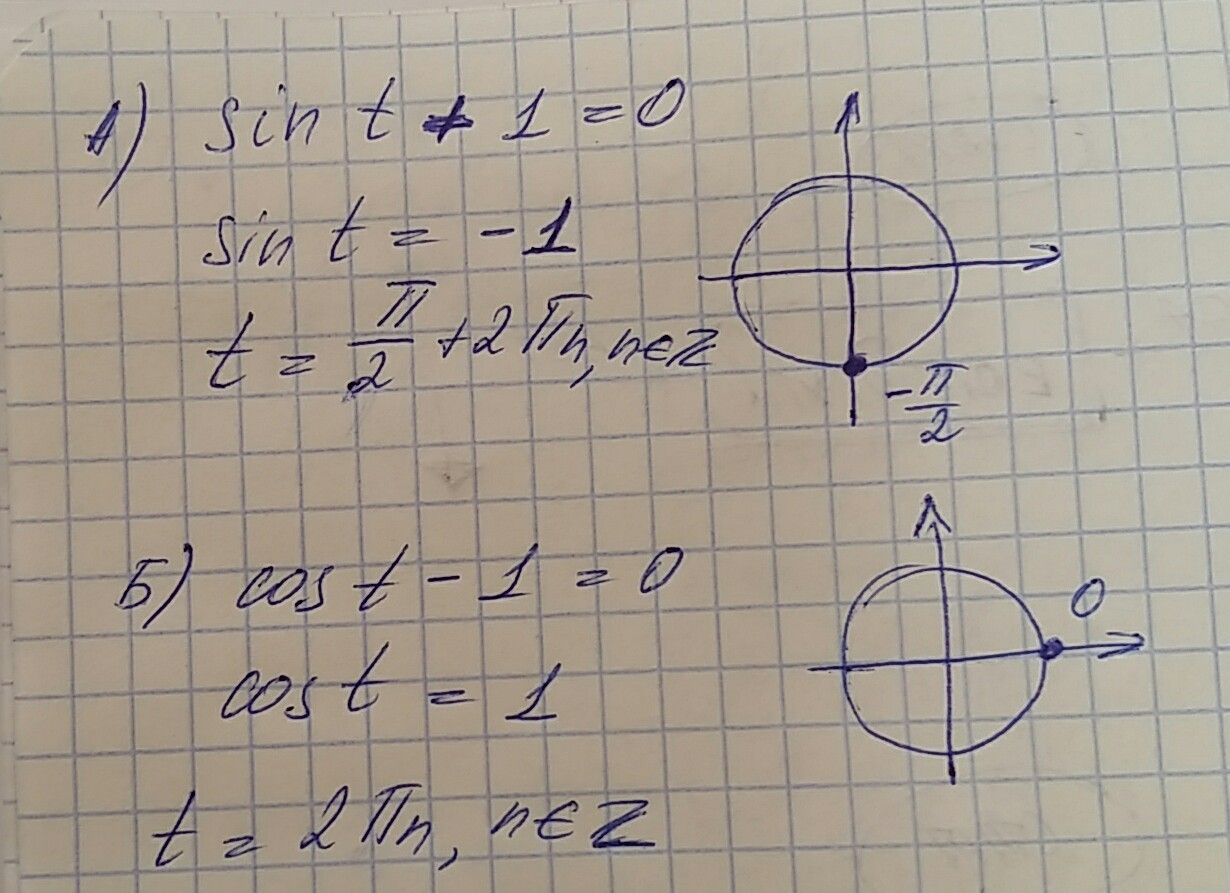 А) sin t + 1 = 0
sin t = -1
t = π/2 + 2πn, n∈Z
-π/2
Б) cos t - 1 = 0
0
cos t = 1
t = 2πn, n∈Z